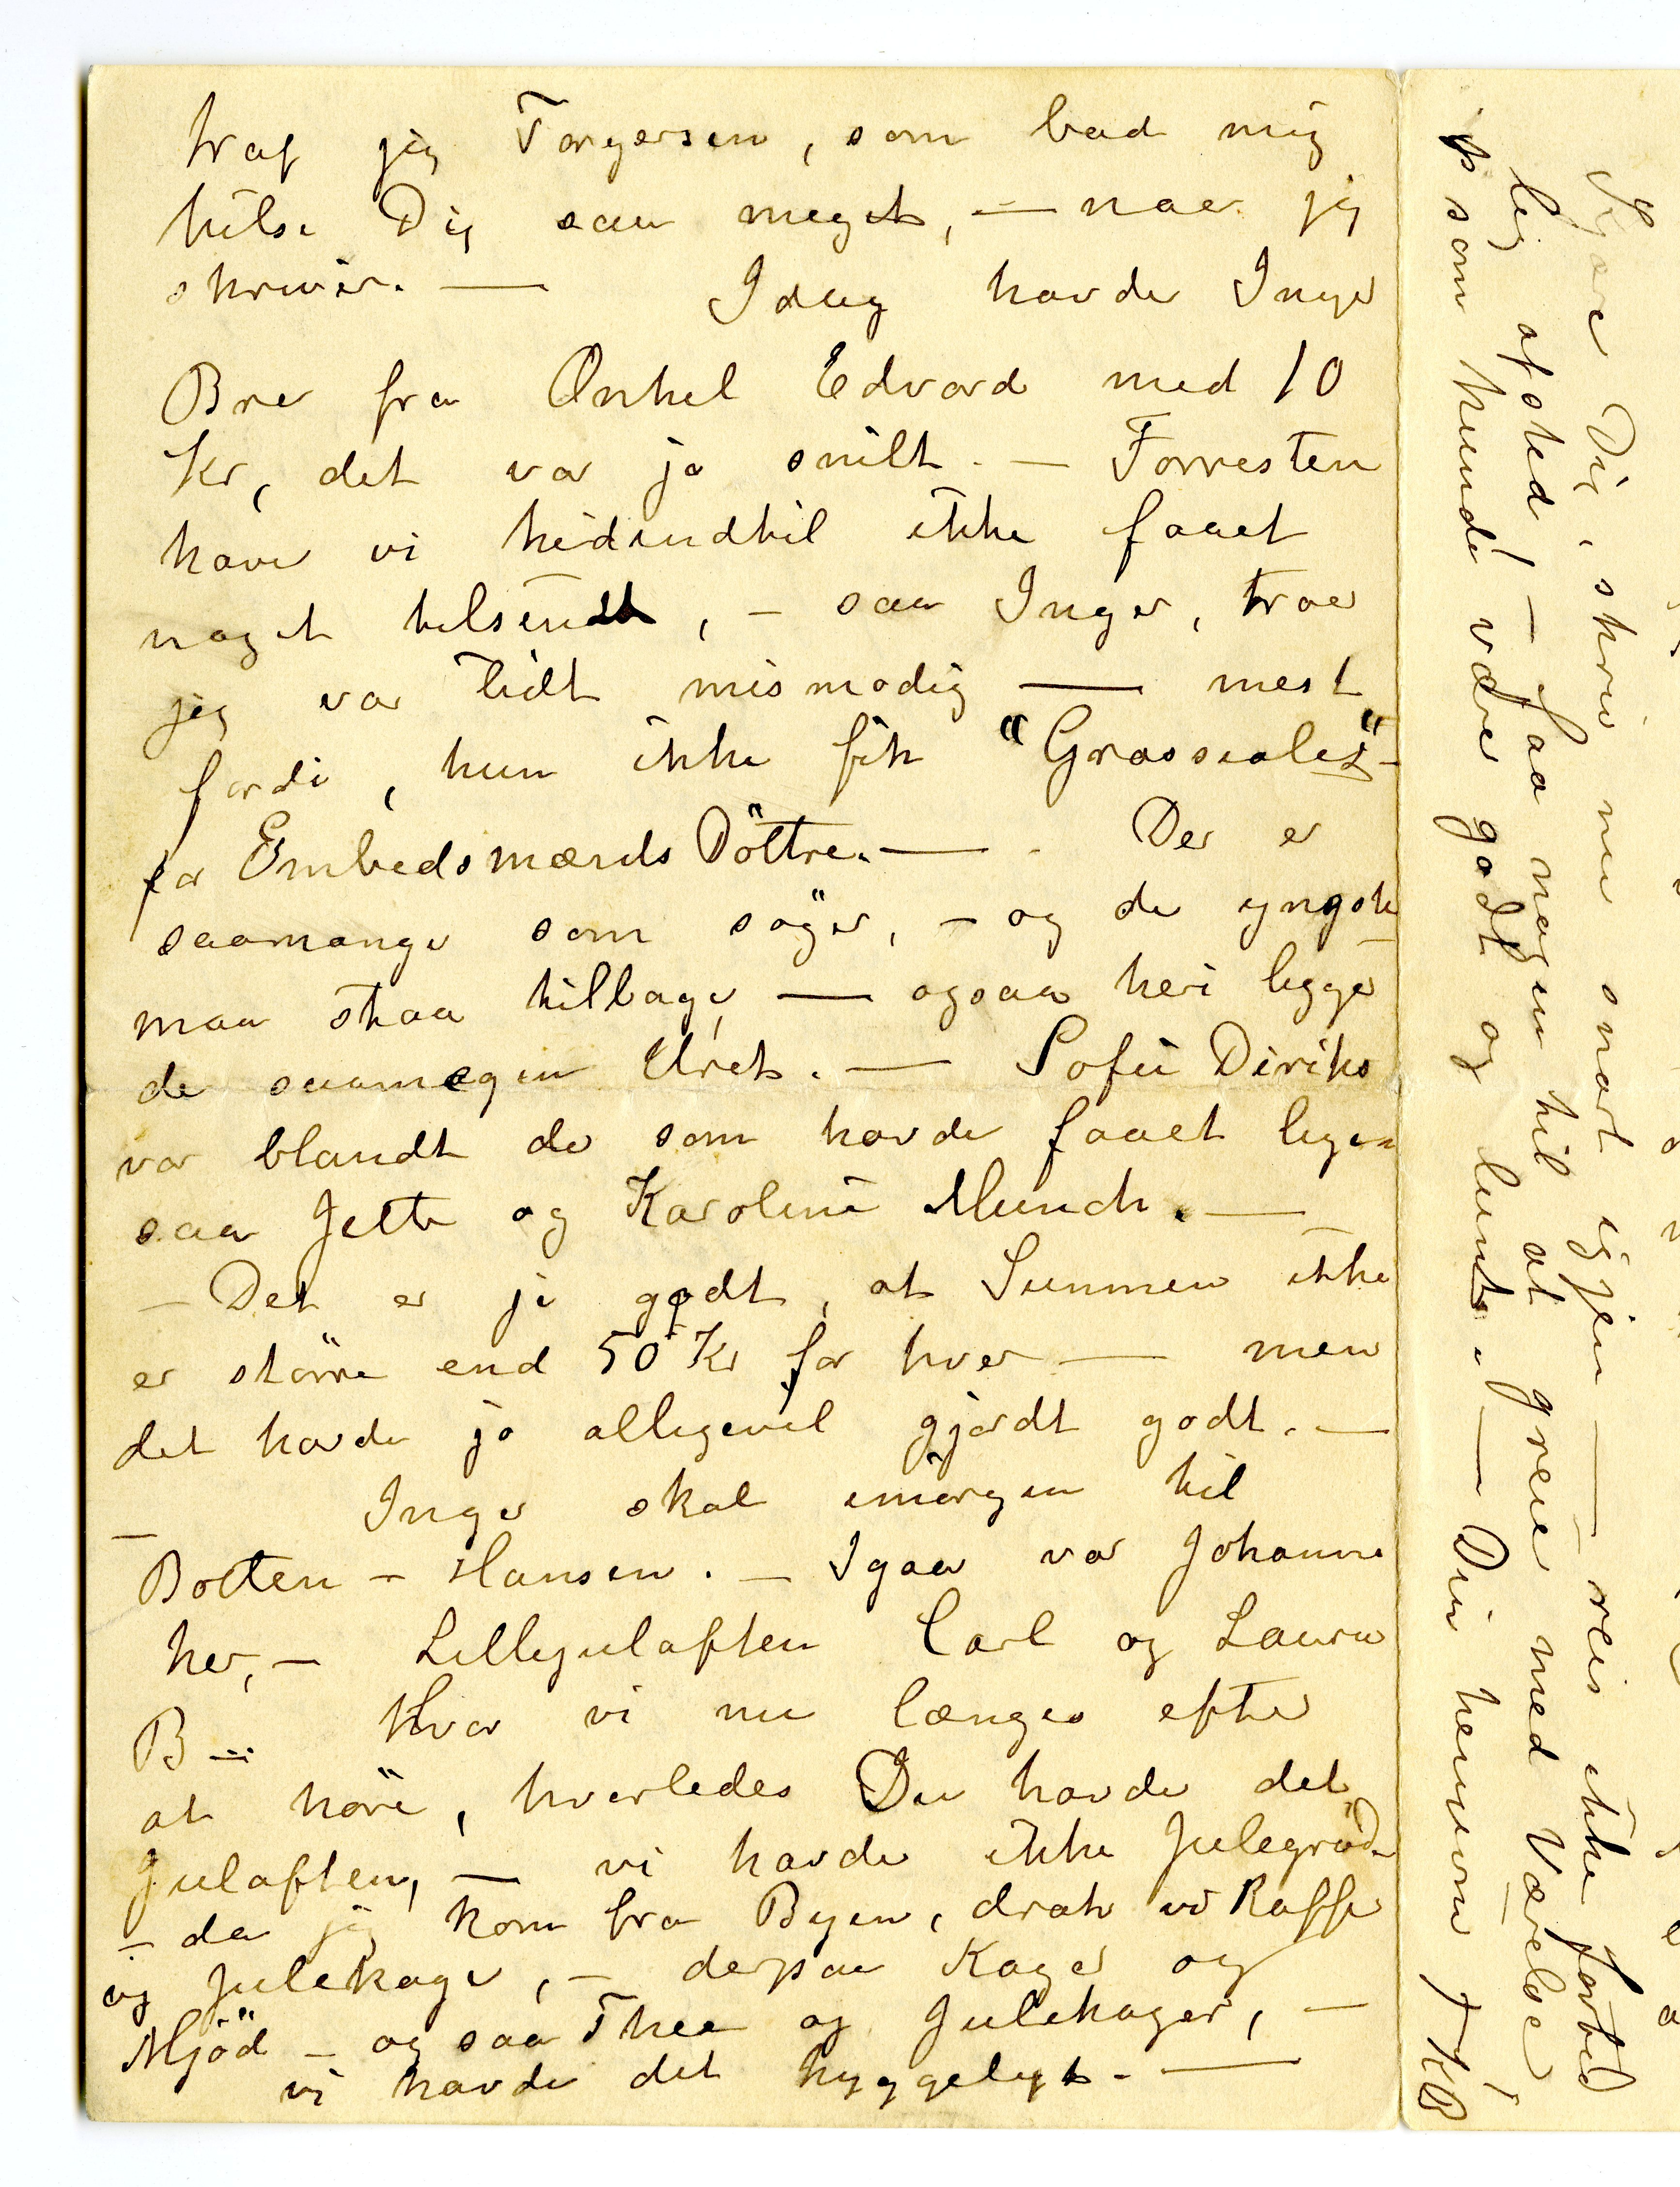 traf jeg Torgersen, som bad mig
hilse Dig saa meget, — naar jeg
skriver. — Idag havde Inger
Brev fra Onkel Edvard med 10
Kr, det var jo snilt. — Forresten
have vi hidindtil ikke faaet
noget tilsendt, — saa Inger, troer
jeg var lidt mismodig — mest
fordi, hun ikke fik "
for Embedsmænds Döttre. — Der er
saamange som söger, — og de yngste
maa staa tilbage, — ogsaa heri ligger
der saamegen Uret. — Sofie Diriks
var blandt de som havde faaet lige-
saa Jette og Karoline Munch. —
— Det er jo godt, at Summen ikke
er större end 50 Kr for hver — men
det havde jo alligevel gjordt godt. —
— Inger skal imorgen til
Botten-Hansen. — Igaar var Johanne
her, — Lillejulaften Carl og Laura
B — Hvor vi nu længes efter
at höre, hvorledes Du havde det
Julaften, — vi havde ikke Julegröd
— da jeg kom fra Byen, drak vi Kaffe
og Julekage, — derpaa Kager og
Mjöd — og saa Thee og Julekager, —
vi havde det hyggeligt. —
Kjære Dig, skriv nu snart igjen — reis ikke forbed
lig afsted! — Faa nogen til at greie med Værelse
som kunde være godt og lunt. — Din hengivne KB